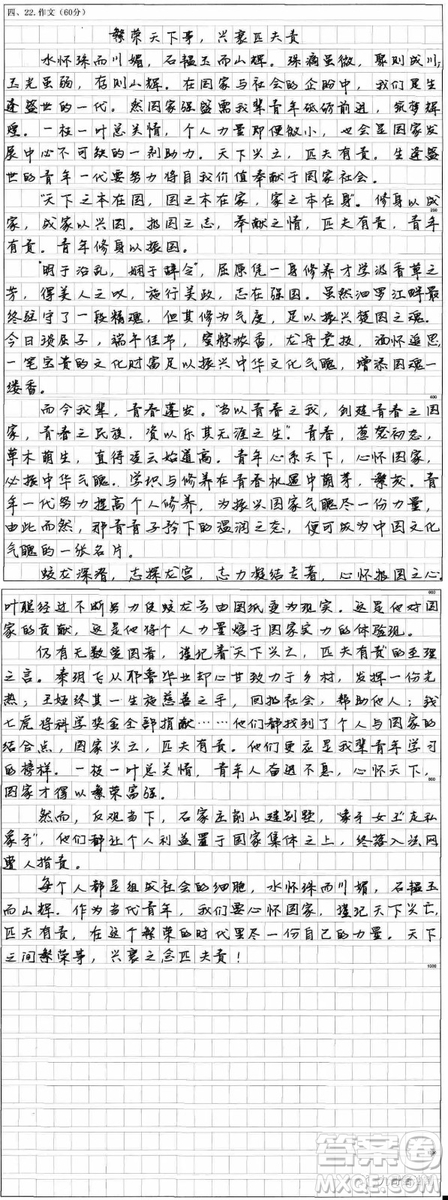 四、22.作文(60分)
繁荣天下事，兴衰匹夫责
水怀珠而川媚，石韫玉而山辉。珠滴虽微，聚则成川；
玉光虽弱，存则山辉。在国家与社会的企盼中，我们是生
逢盛世的一代。然国家强盛需我辈青年砥砺前进，筑梦辉
煌。一枝一叶总关情，个人力量即便微小，也会是国家发
展中必不可缺的一剂助力。天下兴亡，匹夫有责。生逢盛
世的青年一代要努力将自我价值奉献于国家社会。
"天下之本在国，国之本在家，家之本在身"。修身以成
家，成家以兴国。报国之志，奉献之情，匹夫有责，青年
有责。青年修身以振国。
"明于治乱，娴于辞令"，屈原凭一身修养才学汲香草之
芳，得美人之叹，施行美政，志在强国。虽然汨罗江畔最
终驻守了一段精魂，但其修为气度，足以振兴楚国之魂。
今日谈屈子，端午佳节，粽香，龙舟竞技，缅怀遥思
一笔宝贵的文化财富足以振兴中华文化气魄，增添国魂一
缕香。
而今我辈，青春蓬发。"当以青春之我，创建青春之国
家，青春之民族，资以乐其无涯之生"。青春，葱葱初态，
草木萌生，直待凌云始道高。青年心系天下，心怀国家，
必振中华气魄。学识与修养在青春枝遒中萌芽，繁茂。青
年一代努力提高个人修养，为振兴国家气魄尽一份力量，
由此而然，那青青子衿下的温润之态，便可成为中国文化
气魄的一张名片。
蛟龙深潜，志探龙宫，志力凝结走着，心怀报国之心
叶聪经过不断努力使蛟龙号由图纸变为现实。这是他对国
家的贡献，这是他将个人力量熔于国家实力的体验现。
仍有无数爱国者，谨记着"天下兴亡，匹夫有责"的至理
之言。秦玥飞从耶鲁毕业却心甘致力于乡村，发挥一份光
热；王珏终其一生施慈善之手，回报社会，帮助他人；钱
七虎将科学奖金全部捐献……他们都找到了个人与国家的
结合点，国家兴亡，匹夫有责。他们更应是我辈青年学习
的榜样。一枝一叶总关情，青年人奋进不息，心怀天下，
国家才得以繁荣富强。
然而，反观当下，石家庄削山建别墅，"牵手女王"走私
象牙"，他们都让个人利益置于国家集体之上，终落入法网
遭人指责。
每个人都是组成社会的细胞，水怀珠而川媚，石韫玉
而山辉。作为当代青年，我们要心怀国家，谨记天下兴亡，
匹夫有责，在这个繁荣的时代里尽一份自己的力量。天下
之间繁荣事，兴衰之念匹夫责！
答案圈